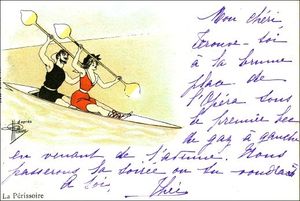 Mon chéri
Trouve-toi
à la brune
place de
l'Opéra sous
le premier bec
de gaz à gauche
en venant de l'avenue. Nous
passerons la soirée où tu voudras
A toi.
d'après
La Périssoire